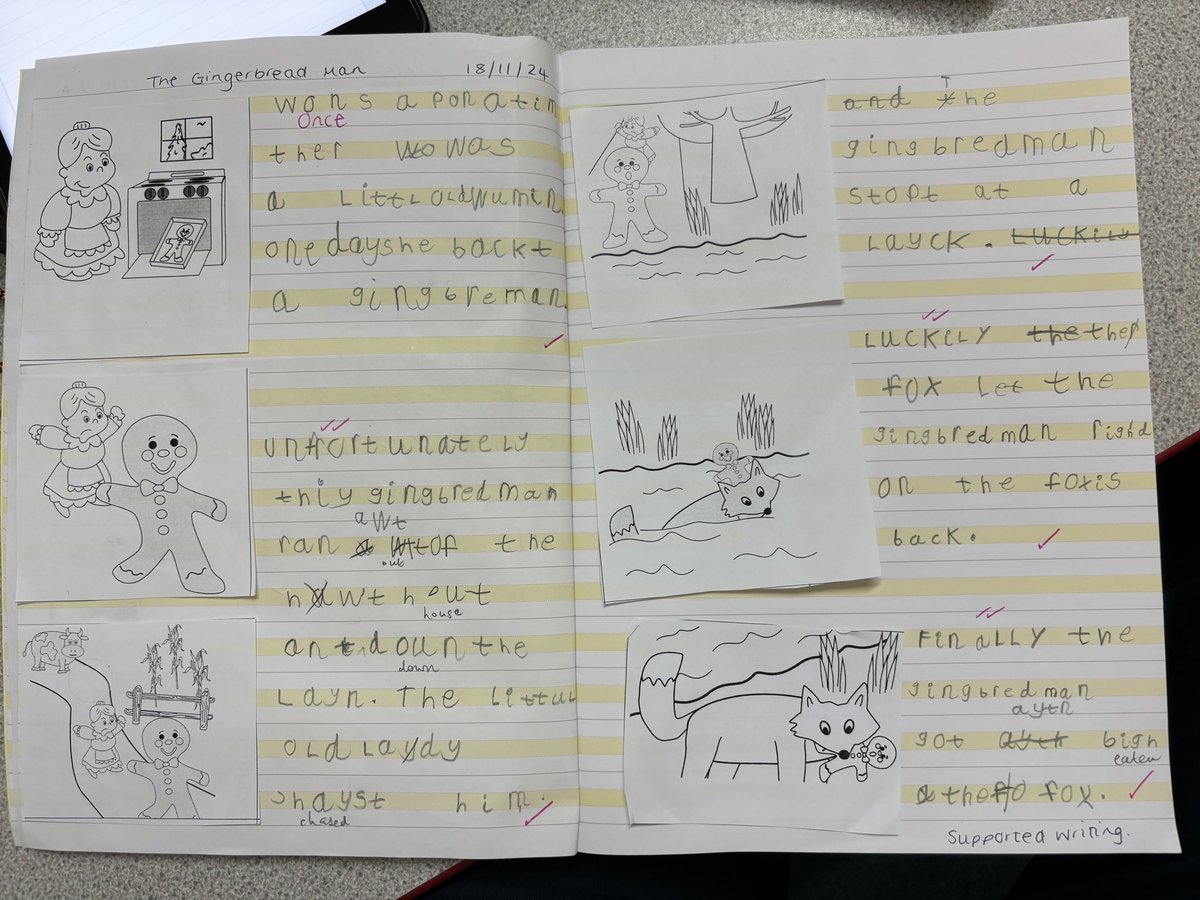 The Gingerbread Man 18/11/24
wons a pon a tim
Once
ther wo was
a Littl old wumin.
one day she back t
a gingbreman.
unfortunately
thiy gingbredman
a wt
ran a wtof the
out
hawt hout
house
an t d oun the
down
Layn. The Littul
old Laydy
shayst him.
chased
T
and the
gingbredman
stopt at a
Layck. Luckily
Luckily the the
fox Let the
gingbredman righd
on the foxis
back.
Finally the
gingbredman
aytn
got aytn bigh
eaten
a the fo fox.
Supported writing.